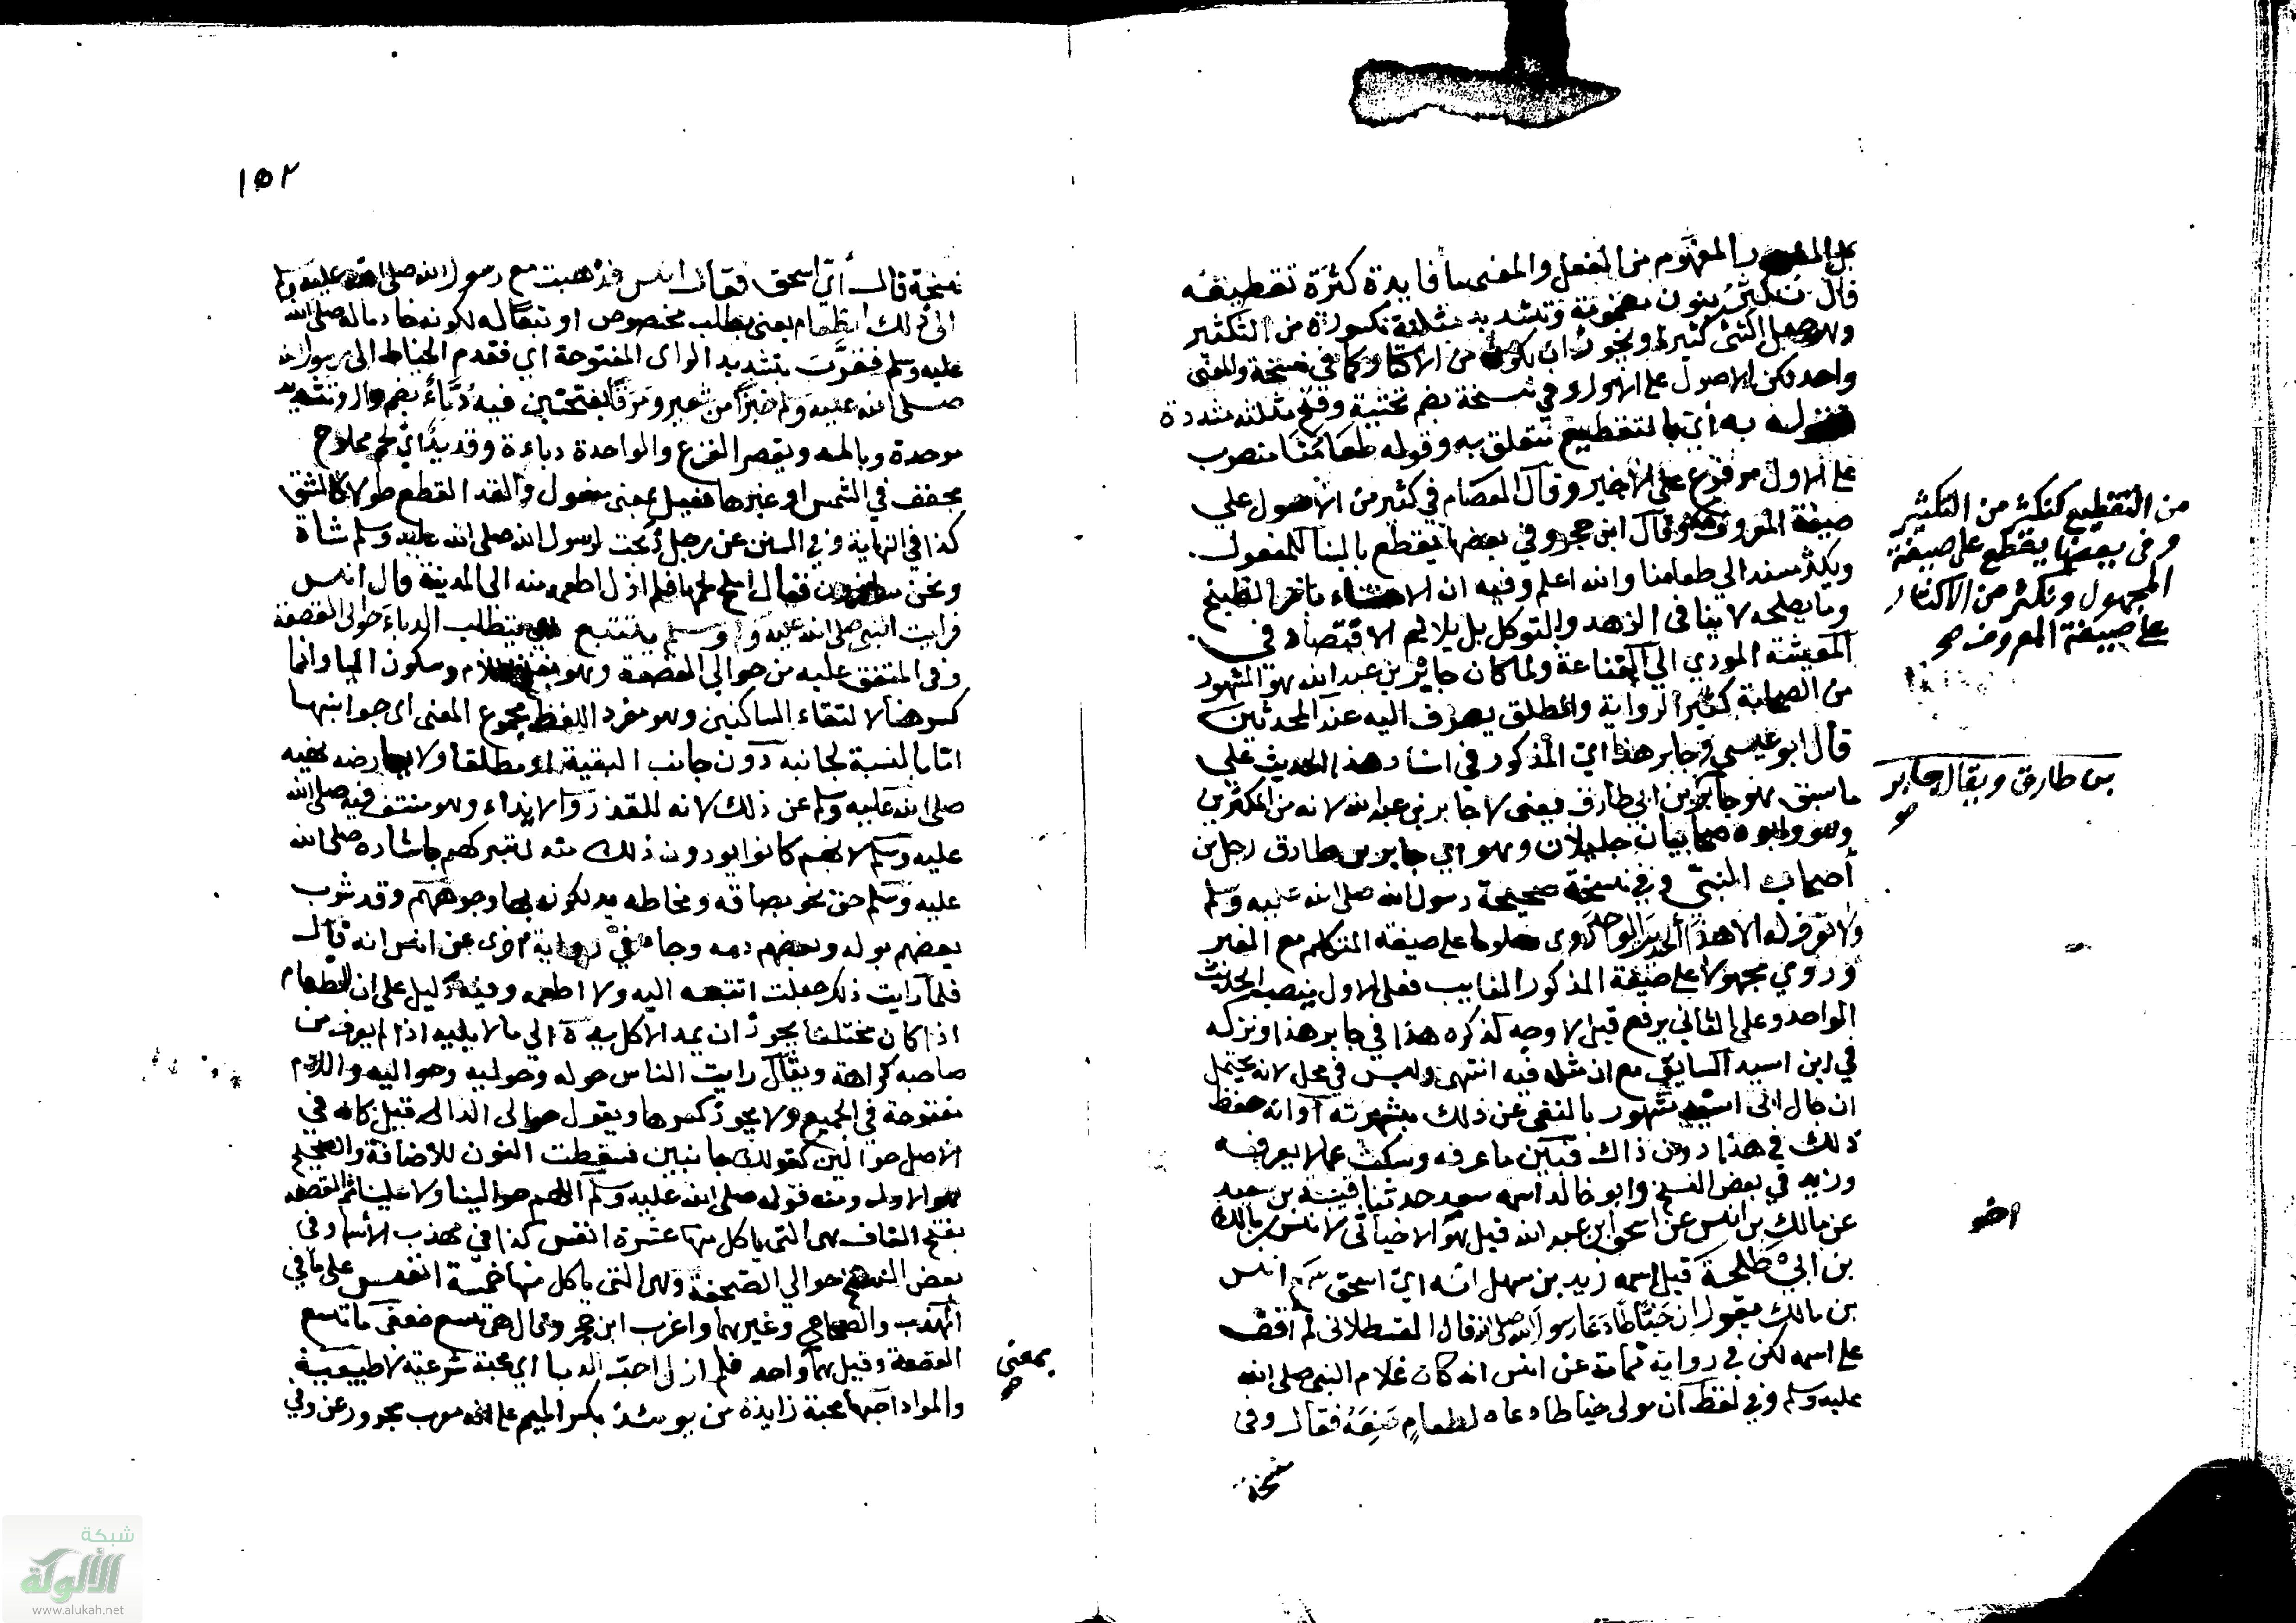 بل المقصود المفهوم من الفعل والمعنى ما فايدة كثرة تقطيعه
قال نُكثِّرُ بنون مضمومة وتشديد مثلثة مكسورة من التكثير
وهو جعل الشئ كثيرا ويجوز ان يكون من الاكثار كما في نسخة والمعنى
واحد لكن الاصول على الاول وفي نسخة بضم تحتية وفتح مثلثة مشددة
فقوله به أي بالتقطيع متعلق به وقوله طعامَنا منصوب
على الاول مرفوع على الاخير وقال العصام في كثير من الأصول على
صيغة المعروف وقال ابن حجر وفي بعضها يقطع بالبنا للمفعول
ويكثر مسند الي طعامنا والله اعلم وفيه ان الاعتناء بامر الطبيخ
وما يصلحه لا ينافى الزهد والتوكل بل يلايم الاقتصاد في
المعيشة المودي الي القناعة ولما كان جابر بن عبد الله هو المشهور
من الصحابة كثير الرواية والمطلق يصرف اليه عند المحدثين
قال ابو عيسى وجابر هذا اي المذكور في اسناد هذا الحديث على
ما سبق هو جابر بن ابي طارق يعنى لا جابر بن عبد الله لانه من المكثرين
وهو وابوه صحابيان جليلان وهو اي جابر بن طارق رجل من
أصحاب النبي وفي نسخة صحيحة رسول الله صلى الله عليه وسلم
ولا نعرف له الا هذا الحديث الواحد روى معلوما على صيغة المتكلم مع الغير
وروي مجهولا على صيغة المذكور الغايب فعلى الاول ينصب الحديث
الواحد وعلى الثاني يرفع قيل لا وجه لذكره هذا في جابر هذا وتركه
في ابن اسيد السابق مع ان مثله فيه انتهى وليس في محل لانه يحتمل
ان حال ابى اسيد مشهور بالنفى عن ذلك بشهرته أو انه حفظ
ذلك في هذا دون ذاك فبين ما عرفه وسكت عما لا يعرفه
وزيد في بعض النسخ وابو خالد اسمه سعد حدثنا قتيبة بن سعيد
عن مالك بن انس عن اسحق ابن عبد الله قيل هو الاخيافى لانس بن مالك
بن ابي طلحة قيل اسمه زيد بن سهل انه اي اسحق سمع انس
بن مالك يقول ان خياطا دعا رسول الله صلى الله قال القسطلانى لم أقف
على اسمه لكن في رواية ثمامة عن انس انه كان غلام النبي صلى الله
عليه وسلم وفي لفظ أن مولى خياطا دعاه لطعامٍ صَنِعَهُ فقال وفى
نسخة
من التقطيع كنكثر من التكثير
وفى بعضها يقطع على صيغة
المجهول ونكثر من الاكثار
على صيغة المعروف صح
بن طارق ويقال جابر
صح
١٥٢
نسخة قال أي اسحق فقال انس فذهبت مع رسول الله صلى الله عليه وسلم
الى ذلك الطعام يعنى بطلب مخصوص او تبعا له لكونه خادما له صلى الله
عليه وسلم فقرَّب بتشديد الراى المفتوحة اي فقدم الخياط الى رسول الله
صلى الله عليه ولم خبزا من شعير ومرقا بفتحتين فيه دُبّاءٌ بضم دال وتشديد
موحدة وبالمد ويقصر القرع والواحدة دباءة وقديدٌ اي لحم مملاح
مجفف في الشمس او غيرها فعيل بمعنى مفعول والقد القطع طولا كالشق
كذا في النهاية وفي السنن عن رجل ذبحت لرسول الله صلى الله عليه وسلم شاة
ونحن مسافرون فقال املح لحمها فلم ازل اطعمه منه الى المدينة قال انس
فرايت النبي صلى الله عليه وسلم يتتبع اي يتطلب الدباءَ حوالى القصعة
وفى المتفق عليه من حوالي القصعة وهو بفتح اللام وسكون اليا وانما
كسر هنا لالتقاء الساكنين وهو مفرد اللفظ مجموع المعنى اى جوانبها
اما بالنسبة لجانبه دون جانب البقية او مطلقا ولا يعارضه نهيه
صلى الله عليه وسلم عن ذلك لانه للتقذر والايذاء وهو منتف فيه صلى الله
عليه وسلم لانهم كانوا يودون ذلك منه لتبركهم باثاره صلى الله
عليه وسلم حتى نحو بصاقه ومخاطه يدلكونه بها وجوههم وقد شرب
بعضهم بوله وبعضهم دمه وجاء في رواية اخرى عن انس انه قال
فلما رايت ذلك جعلت اتتبعه اليه ولا اطعمه وفيه دليل على ان الطعام
اذا كان مختلفا يجوز ان يمد الاكل يده الي ما لا يليه اذا لم يعرف من
صاحبه كراهة ويقال رايت الناس حوله وحوليه وحواليه واللام
مفتوحة في الجميع ولا يجوز كسرها ويقول حوالى الدار قيل كانه في
الاصل حوالين كقولك جانبين فسقطت النون للاضافة والصحيح
هو الاول ومنه قوله صلى الله عليه وسلم اللهم حوالينا ولا علينا ثم القصعة
بفتح القاف هى التي ياكل منها عشرة انفس كذا في مهذب الأسما وفى
بعض النسخ حوالي الصحفة وهى التى ياكل منها خمسة انفس على ما في
المهذب والصحاح وغيرهما واغرب ابن حجر وقال هى تسع ضعفى ما تسع
القصعة وقيل هما واحد فلم ازل احبّ الدبا اي محبة شرعية لا طبيعية
والمراد احبها محبة زايدة من يومئذٍ بكسر الميم على انه معرب مجرور بمن وفي
بمعنى
صح